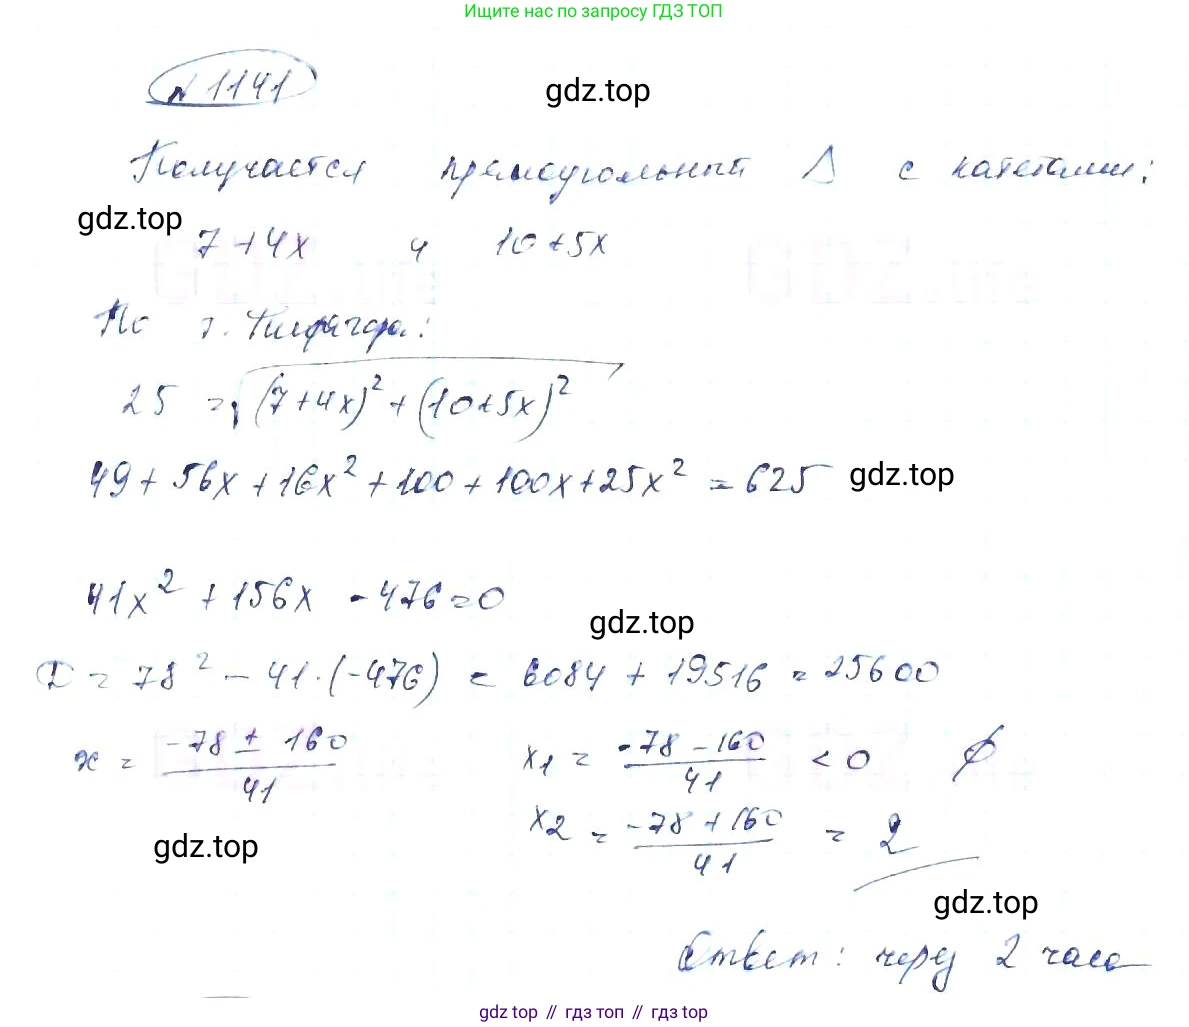 Ищите нас по запросу ГДЗ ТОП
№ 1141
gdz.top
Получается прямоугольный Δ с катетами:
gdz.top
7+4x и 10+5x
По т. Пифагора:
25 = √(7+4x)² + (10+5x)²
49 + 56x + 16x² + 100 + 100x + 25x² = 625
gdz.top
41x² + 156x - 476 = 0
gdz.top
D = 78² - 41·(-476) = 6084 + 19516 = 25600
x = (-78 ± 160)/41 x1 = (-78 - 160)/41 < 0 ∅
x2 = (-78 + 160)/41 = 2
gdz.top
gdz.top
Ответ: через 2 часа
gdz top // гдз топ // gdz top